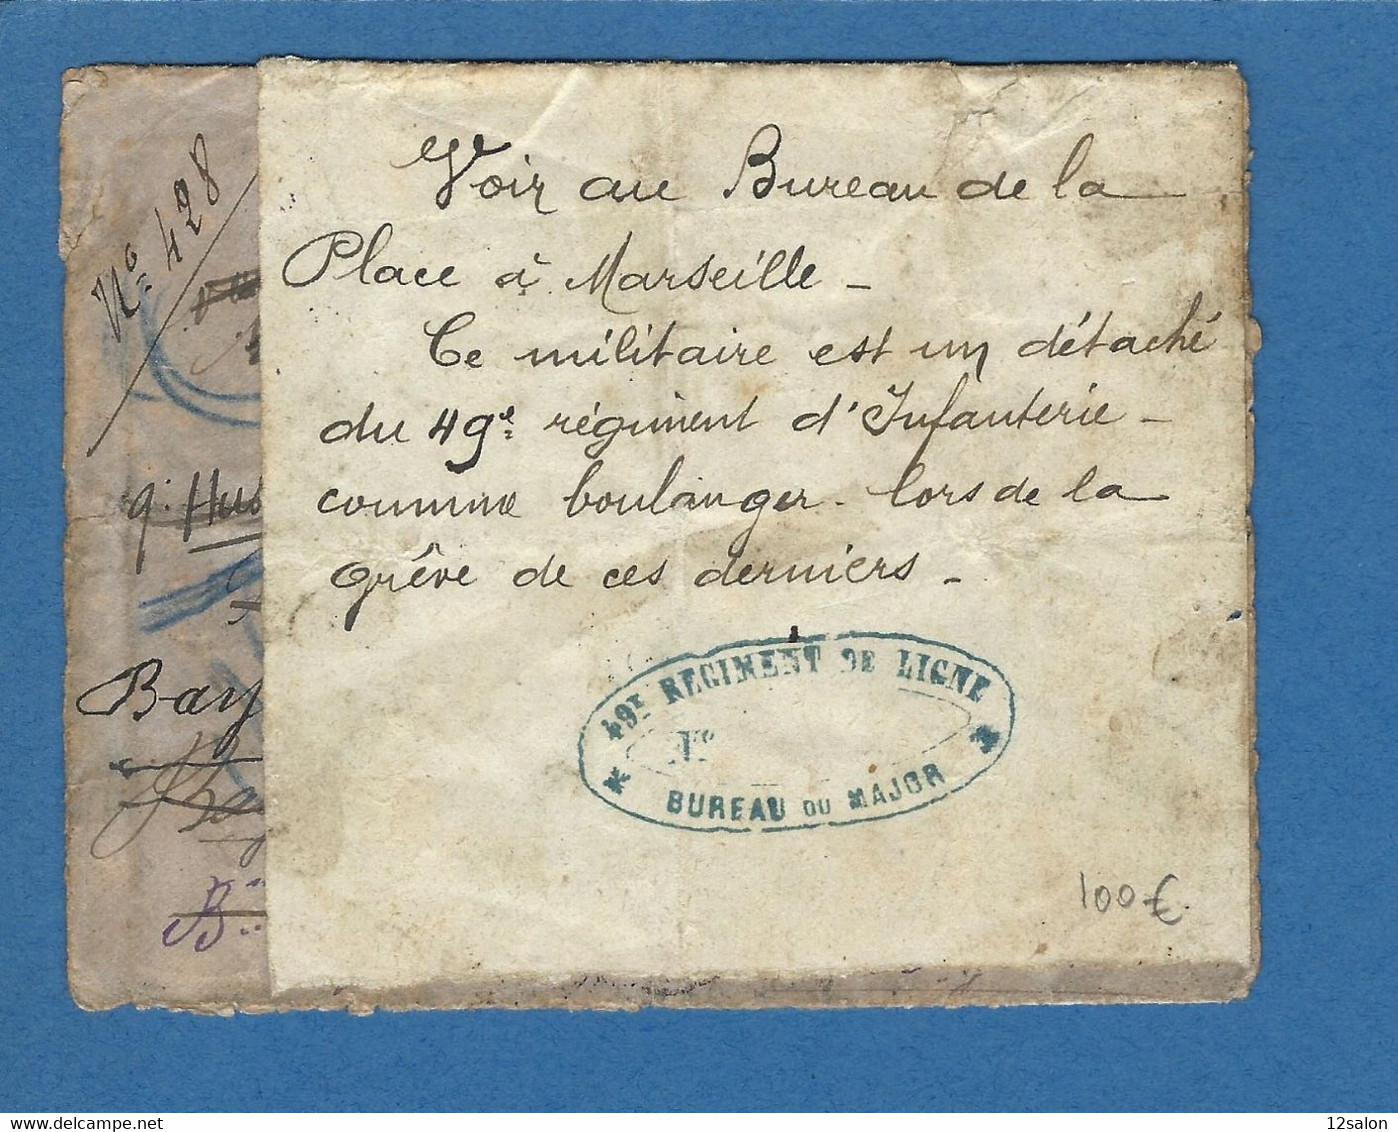 No 428
Voir au Bureau de la
Place à Marseille -
Ce militaire est un détaché
du 49e régiment d'Infanterie -
comme boulanger - lors de la
grêve de ces derniers -
9. Hus
Bay
B
49E REGIMENT DE LIGNE
No
BUREAU DU MAJOR
100€
delcampe.net
12salon